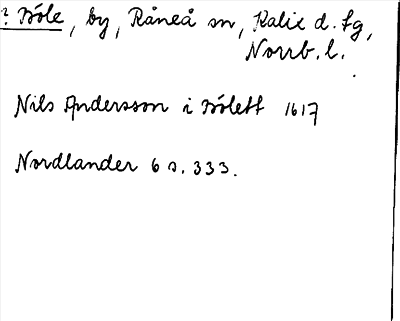 ? Böle, by, Råneå sn, Kalix d. fg,
Norrb. l.
Nils Andersson i Bölett 1617
Nordlander 6 s. 333.